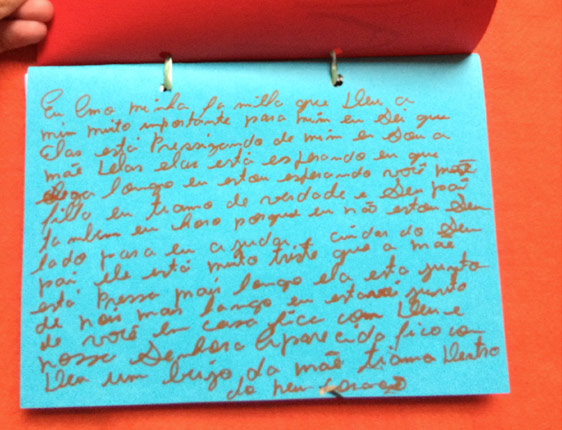 Eu Emo minha fa milha que Deu a
mim muito importante para mim eu Sei que
Elas está Pressizando de mim eu Sou a
mãe Delas elas está esperando eu que
chega longo eu estou esperando você mate
filha eu tiamo de verdade e Seu pai
também eu horo porque eu não estou Seu
lado para eu ajudar, cuidar do Seu
pai ele está muito triste que a mãe
está Pressa mais longo ela esta junto
de nois mais longo eu estarei junto
de você em casa fica com Deu e
nossa Senhora Aparecida fico com
Deu um beijo da mãe tiamo Dentro
do meu corasão